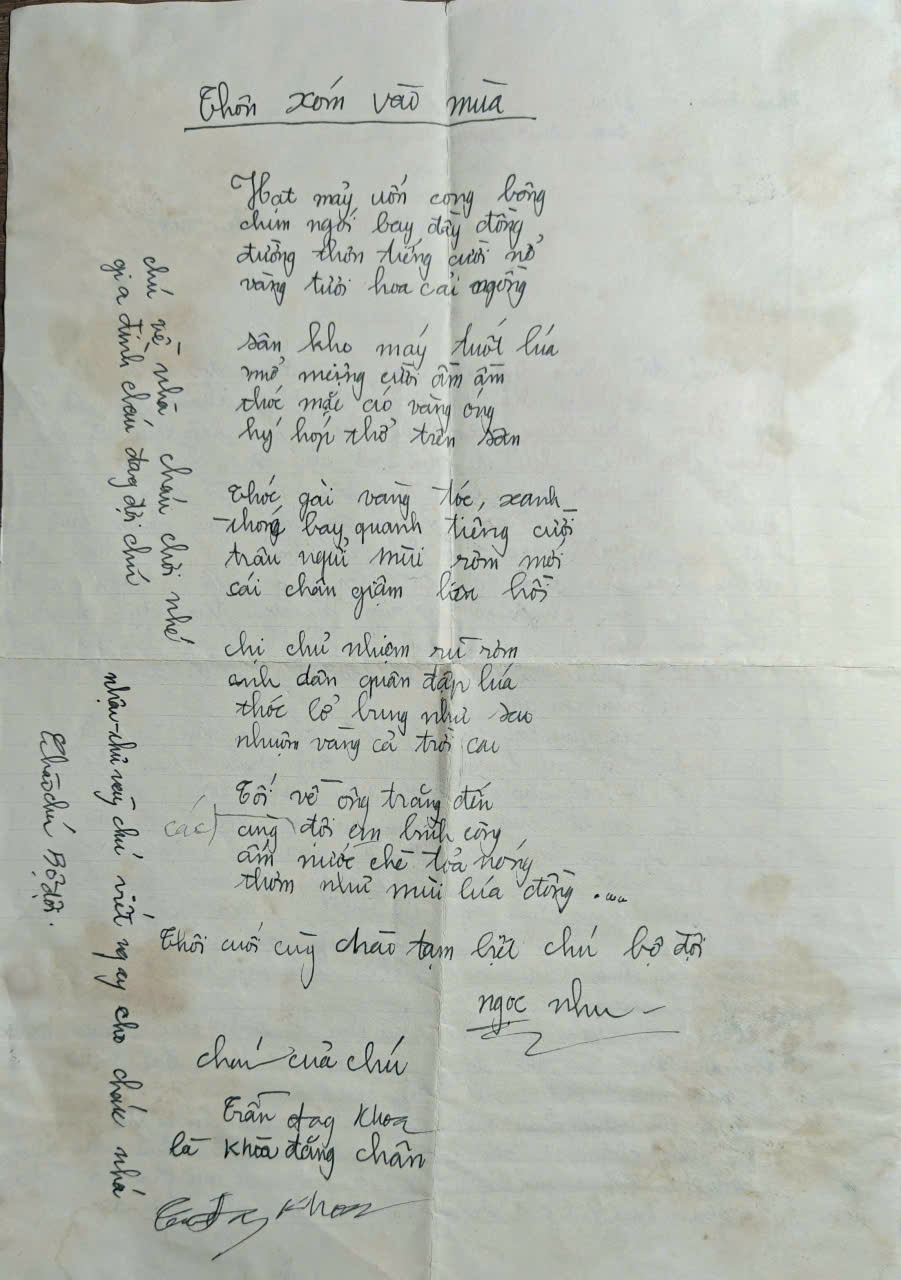 Thôn xóm vào mùa
Hạt mẩy uốn cong bông
chim ngói bay đầy đồng
đường thôn tiếng cười nở
vàng tươi hoa cải ngồng
sân kho máy tuốt lúa
mở miệng cười ầm ầm
thóc mặc áo vàng óng
hý hóp thở trên sân
Thóc gài vàng tóc, xanh
thóng bay quanh tiếng cười
trâu ngửi mùi rơm mới
cái chân giậm liên hồi
chị chủ nhiệm rũ rơm
anh dân quân đập lúa
thóc lở bung như sao
nhuộm vàng cả trời cao
Tối về ông trăng đến
các
cùng đội em bình công
ấm nước chè toả nóng
thơm như mùi lúa đồng ....
Thôi cuối cùg chào tạm biệt chú bộ đội
ngọc như
cháu của chú
Trần đag Khoa
là Khoa đăng chân
chú về nhà, cháu chơi nhé
gia đình cháu đag đợi chú
nhận thư này chú viết ngay cho cháu nhá
Chào chú Bộ đội.